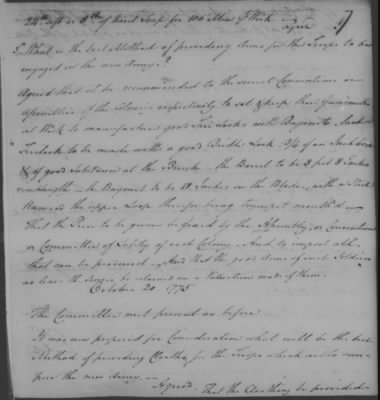 24 lb Soft or 8 lb of hard Soap for 100 Men ⅌ Week
Agreed
5. What is the best Method of providing Arms for the Troops to be
engaged in the new Army?
Agreed that it be recommended to the several Conventions or
Assemblies of the Colonies respectively to set & keep their Gunsmiths
at Work to manufacture good Fire Locks with Bayonets, Each
Firelock to be made with a good Bridle Lock, 3/4 of an Inch bore
& of good Substance at the Breech – the Barrel to be 3 feet 8 Inches
in length – the Bayonet to be 18 Inches in the Blade, with a Steel
Ramrod the upper Loop thereof being trumpet mouth'd –
That the Price to be given be fixed by the Assembly, or Convention
or Committee of Safety of each Colony. And to import all
that can be procured – And that the good Arms of such Soldiers
as leave the Service be retained on a Valuation made of them.
October 20 1775
The Committee met present as before
It was now proposed for Consideration what will be the best
Method of providing Cloaths for the Troops which are to com-
pose the new Army —
Agreed. That the Cloathing be provided